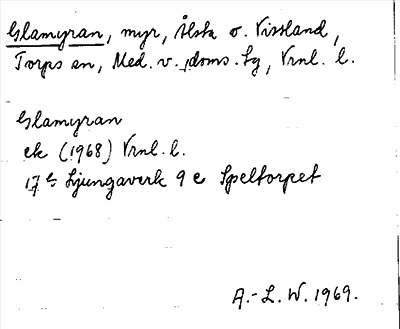 Glamyran, myr, Ålsta o. Vissland,
Torps sn, Med. v. doms. lg, Vrnl. l.
Glamyran
ek (1968) Vrnl. l.
17 Ljungaverk 9 e Speltorpet
A.-L. W. 1969.